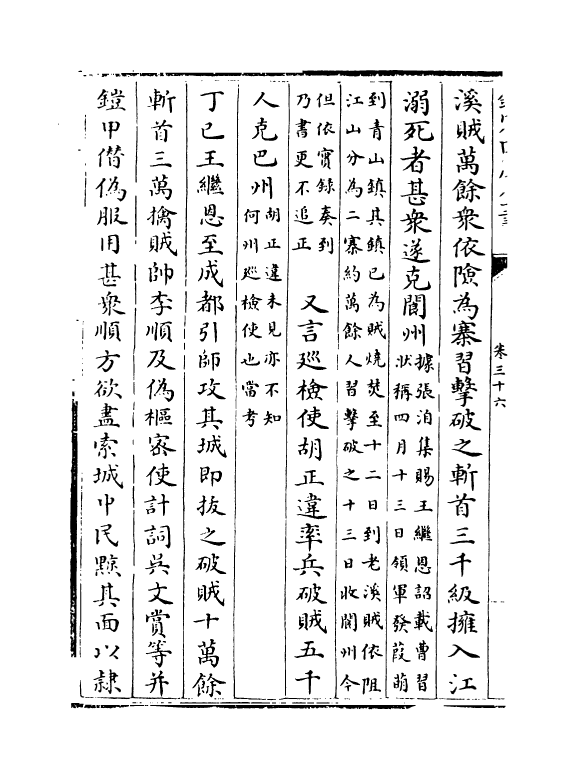 卷三十六
溪賊萬餘衆依險為寨習擊破之斬首三千級擁入江
溺死者甚衆遂克閬州
據張洎集賜王繼恩詔載曹習
狀稱四月十三日領軍發葭萌
到青山鎮其鎮已為賊燒焚至十二日到老溪賊依阻
江山分為二寨約萬餘人習擊破之十三日收閬州今
但依實録奏到
乃書更不追正
又言廵檢使胡正違率兵破賊五千
人克巴州
胡正違未見亦不知
何州廵檢使也當考
丁巳王繼恩至成都引師攻其城即拔之破賊十萬餘
斬首三萬擒賊帥李順及偽樞密使計詞吳文賞等并
鎧甲僭偽服用甚衆順方欲盡索城中民黥其面以隸